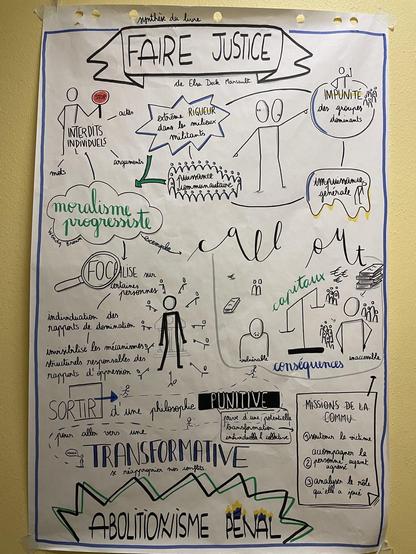 synthèse du livre
FAIRE JUSTICE
de Elsa Deck Marsault
STOP
INTERDITS
INDIVIDUELS
actes
mots
arguments
extrême RIGUEUR
dans les milieux
militants
IMPUNITÉ
des groupes
dominants
puissance
communautaire
impuissance
générale
moralisme
progressiste
exemple
call out
FOCALISE sur
certaines
personnes
capitaux
individuation des
rapports de domination
invisibilise les mécanismes
structurels responsables des
rapports d'oppression
vulnérable
inaccessible
conséquences
SORTIR d'une philosophie PUNITIVE
prive d'une potentielle
transformation
individuelle & collective
pour aller vers une
TRANSFORMATIVE
se réapproprier nos conflits
MISSIONS DE LA
COMMU
① soutenir la victime
② accompagner la
personne ayant
agressé
③ analyser le rôle
qu'elle a joué
ABOLITIONISME PÉNAL